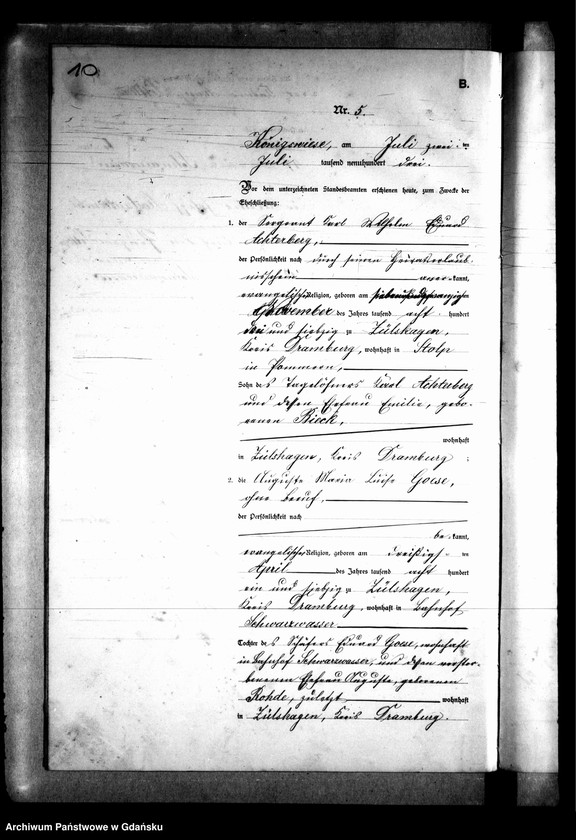 10
B.
Nr. 5.
Königswiese, am Juli zwei ten
Juli tausend neunhundert drei.
Vor dem unterzeichneten Standesbeamten erschienen heute, zum Zwecke der
Eheschließung:
1. der Sergeant Karl Wilhelm Eduard
Achterberg,
der Persönlichkeit nach durch seinen Heiratserlaub-
nisschein aner-kannt,
evangelischer Religion, geboren am
November des Jahres tausend acht hundert
drei und siebzig zu Zülshagen,
Kreis Dramburg, wohnhaft in Stolp
in Pommern,
Sohn des Tagelöhners Karl Achterberg
und dessen Ehefrau Emilie, gebo-
renen Bieck,
wohnhaft
in Zülshagen, Kreis Dramburg ;
2. die Auguste Maria Luise Goese,
ohne Beruf,
der Persönlichkeit nach
be-kannt,
evangelischer Religion, geboren am dreißigs- ten
April des Jahres tausend acht hundert
ein und siebzig zu Zülshagen,
Kreis Dramburg, wohnhaft in Bahnhof
Schwarzwasser
Tochter des Schäfers Eduard Goese, wohnhaft
in Bahnhof Schwarzwasser, und dessen verstor-
benenen Ehefrau Auguste, geborenen
Rohde, zuletzt wohnhaft
in Zülshagen, Kreis Dramburg.
Archiwum Państwowe w Gdańsku